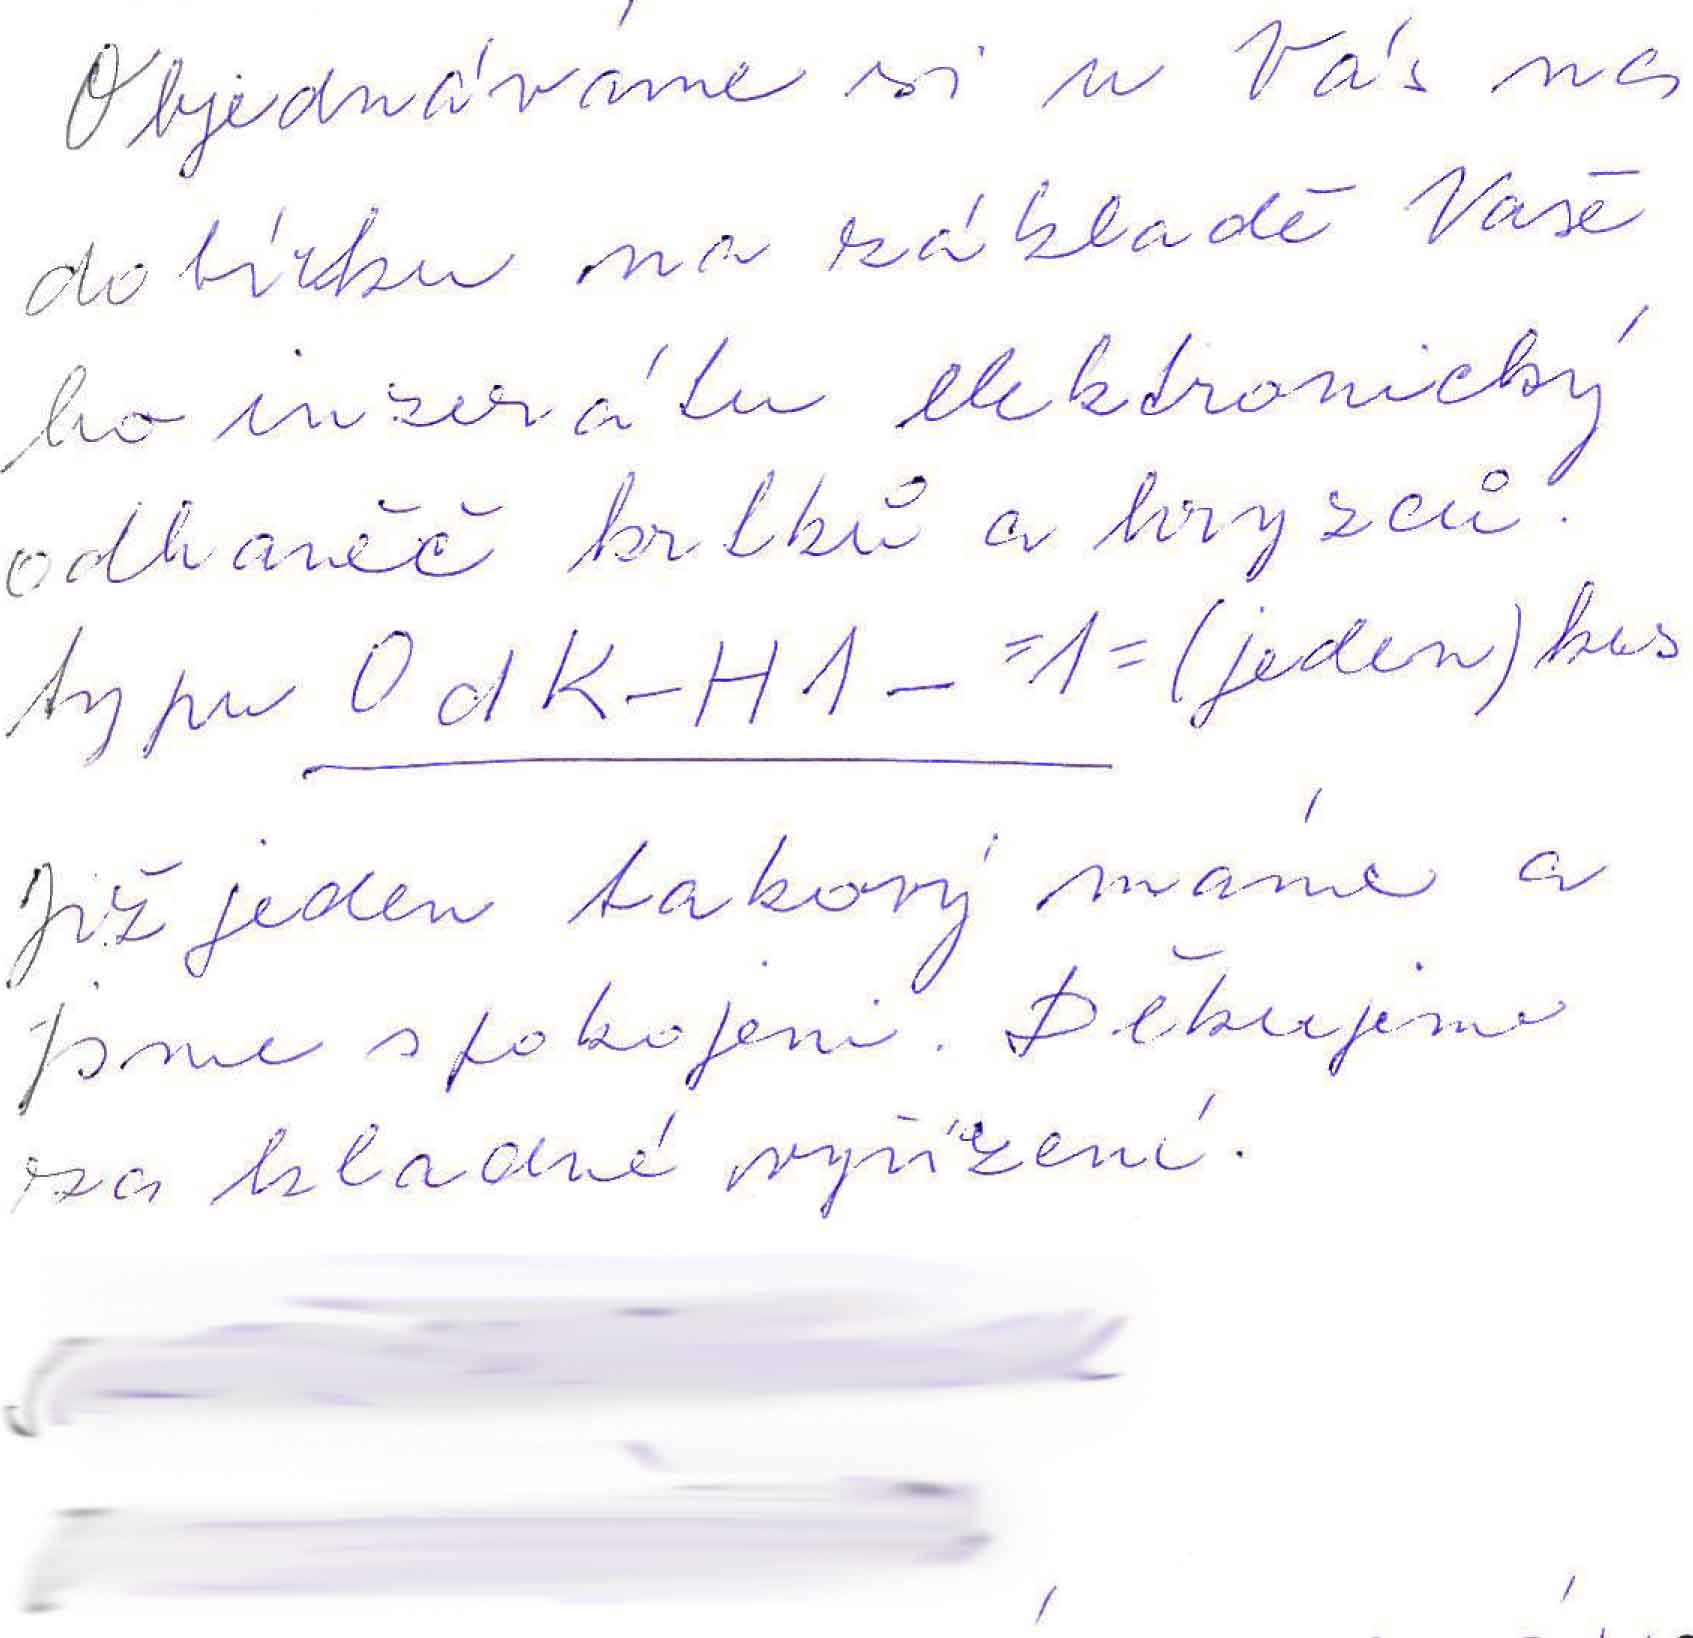 Objednáváme si u Vás na
dobírku na základě Vaše
ho inzerátu elektronický
odhaněč krtků a hryzců.
typu OdK-H1- =1= (jeden) kus
Již jeden takový máme a
jsme spokojeni. Děkujeme
za kladné vyřízení.